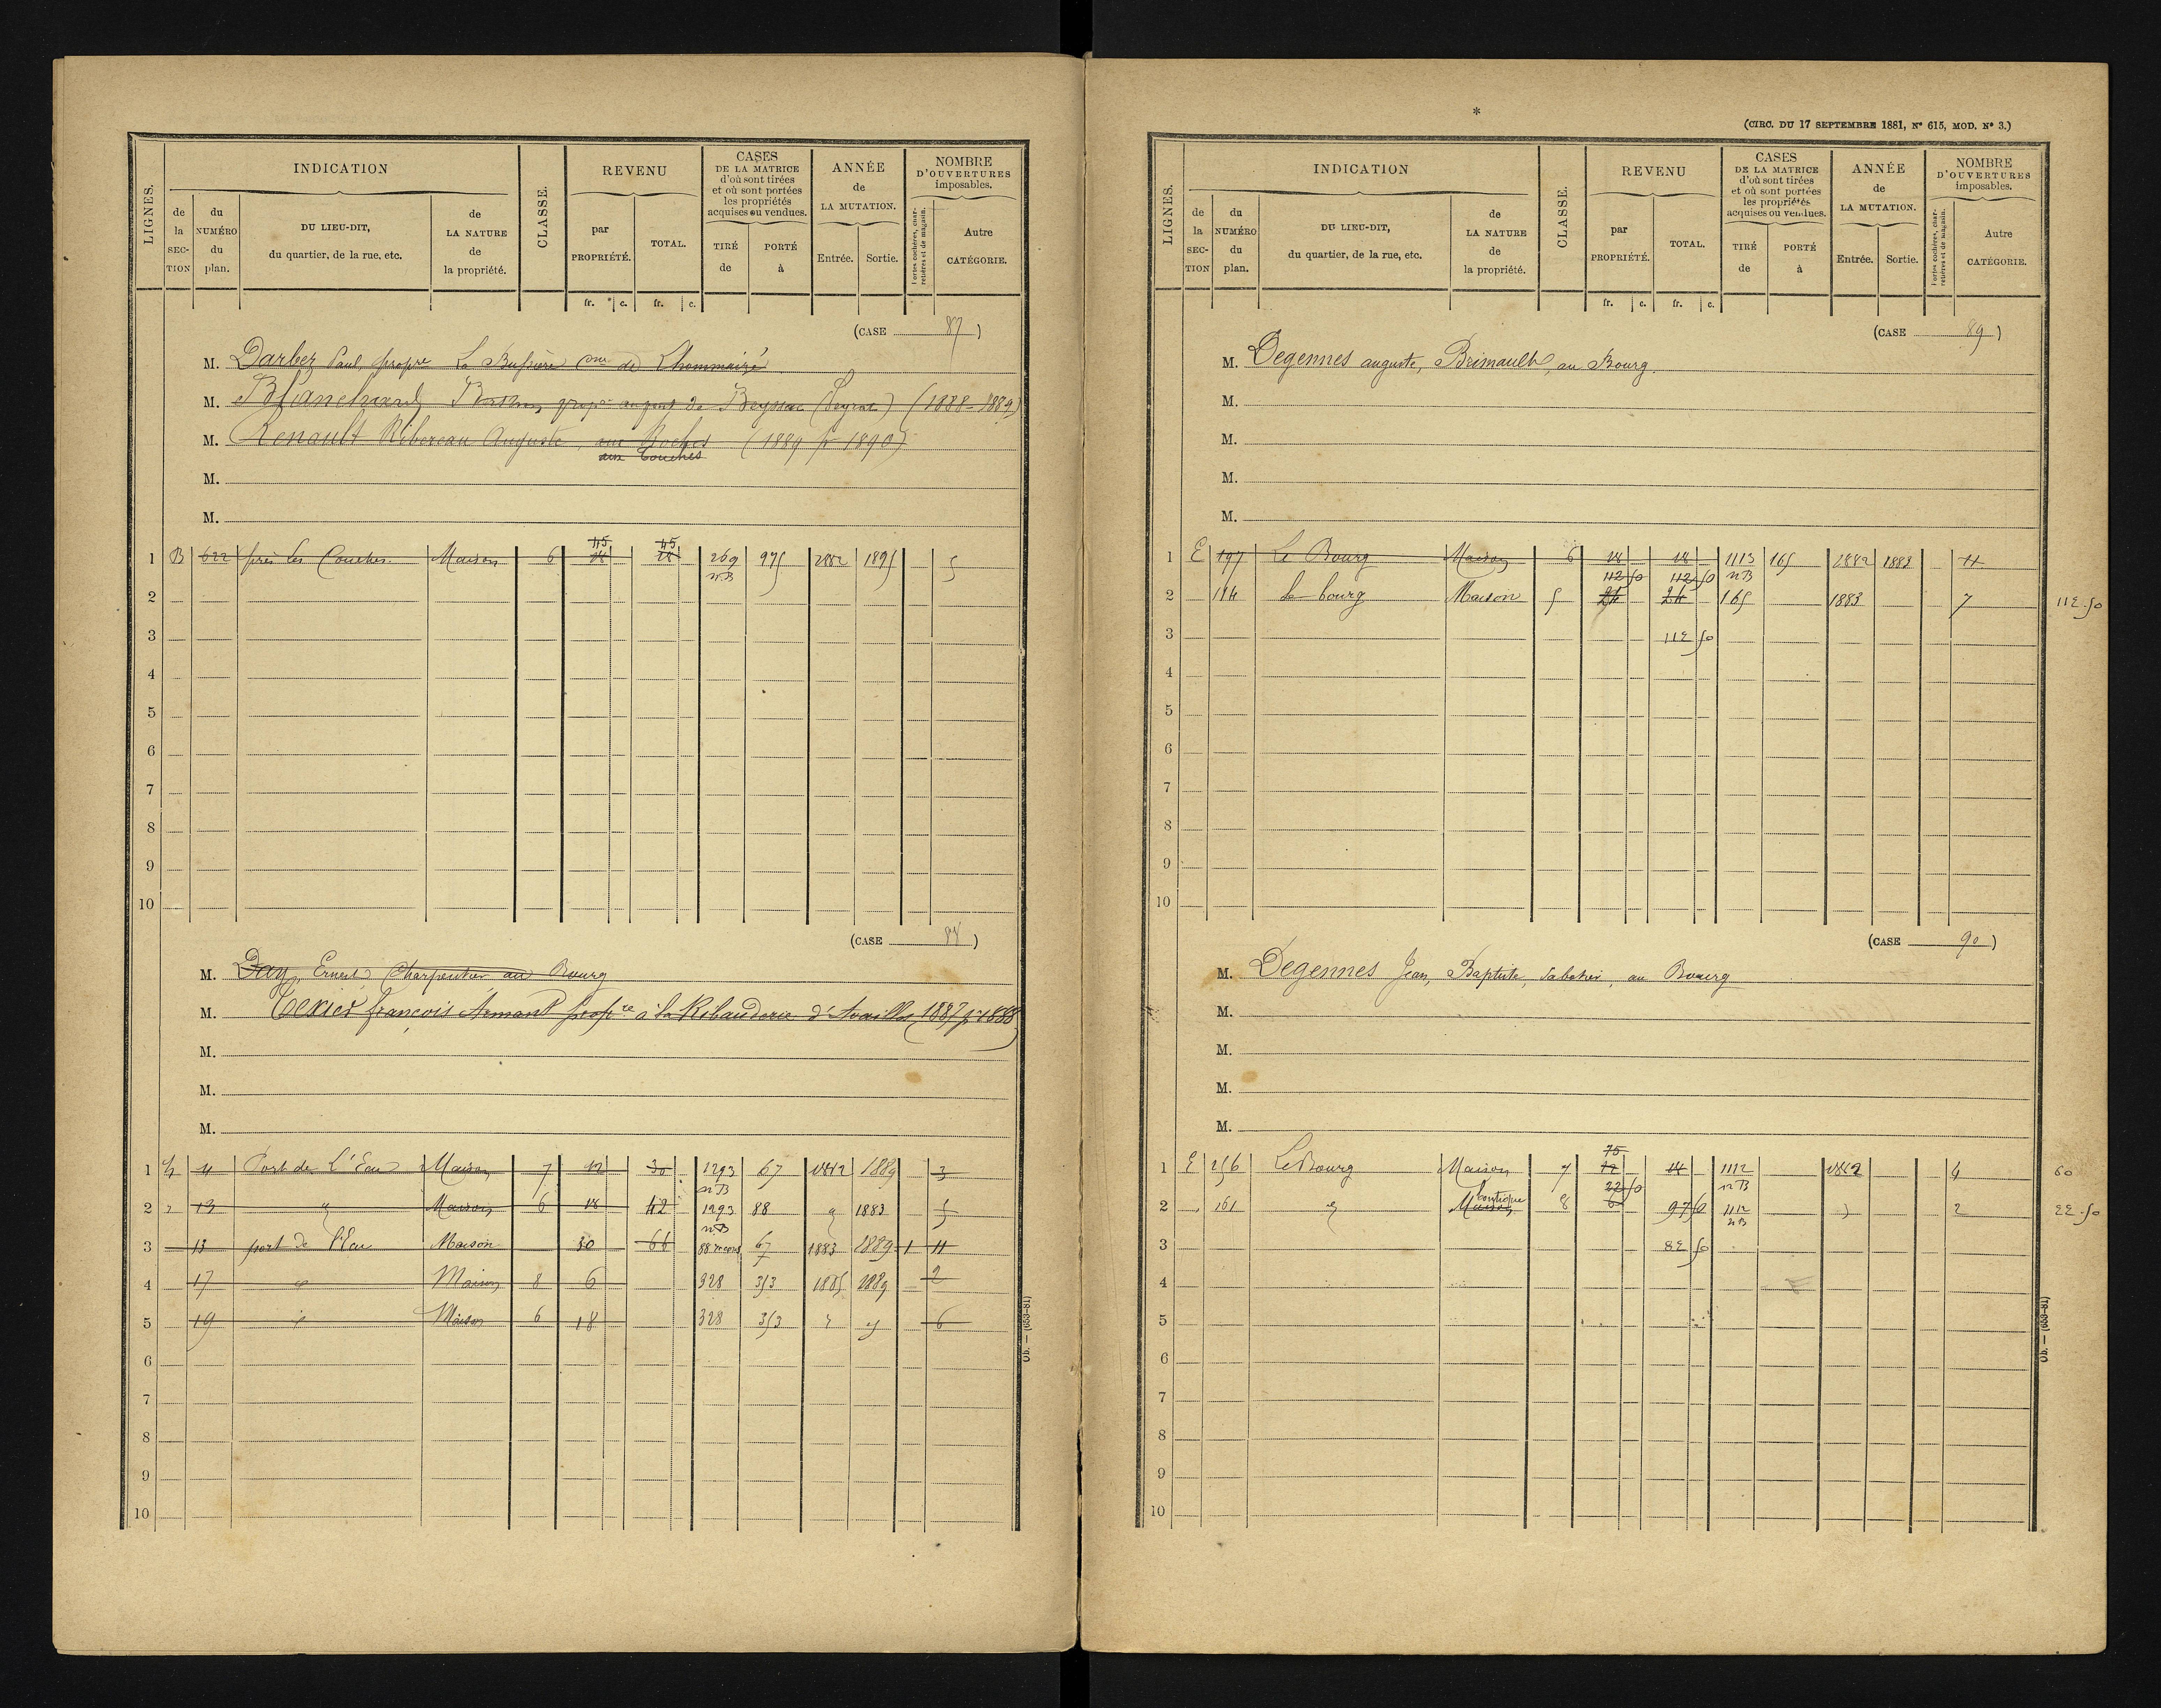 INDICATION
CLASSE.
REVENU
CASES
DE LA MATRICE
d'où sont tirées
et où sont portées
les propriétés
acquises ou vendues.
ANNÉE
de
LA MUTATION.
NOMBRE
D'OUVERTURES
imposables.
LIGNES.
de la SECTION
du NUMÉRO du plan.
DU LIEU-DIT,
du quartier, de la rue, etc.
de LA NATURE de la propriété.
par PROPRIÉTÉ.
TOTAL.
TIRÉ de
PORTÉ à
Entrée.
Sortie.
Portes cochères, charretières et de magasin.
Autre CATÉGORIE.
fr. c. fr. c.
(CASE 87)
M. Darbez Paul, propre La Bussière cne de Lhommaizé
M. Blanchard
(1888-1889)
M. Renault Ribereau Auguste, aux Roches (1889 pr 1890)
aux Couches
M.
M.
45 45
1 B 622 près les Couches. Maison 6 18 18 269 975 1882 1895 5
nB
2
3
4
5
6
7
8
9
10
(CASE 88)
M. Day, Ernest, Charpentier au Bourg
M. Texier françois Armant propre à la Ribauderie d'Availles (1887 pr 1888)
M.
M.
M.
1 11 Port de L'Eau Maison 7 12 30 1293 67 1882 1889 3
nB
2 13 " Maison 6 18 42 1293 88 " 1883 5
nB
3 13 port de l'Eau Maison 30 66 88 67 1883 1889 1 11
4 17 Maison 8 6 328 353 1885 1889 2
5 19 Maison 6 18 328 353 6
6
7
8
9
10
Ob. — (653-81)
*
(CIRC. DU 17 SEPTEMBRE 1881, N° 615, MOD. N° 3.)
INDICATION
CLASSE.
REVENU
CASES
DE LA MATRICE
d'où sont tirées
et où sont portées
les propriétés
acquises ou vendues.
ANNÉE
de
LA MUTATION.
NOMBRE
D'OUVERTURES
imposables.
LIGNES.
de la SECTION
du NUMÉRO du plan.
DU LIEU-DIT,
du quartier, de la rue, etc.
de LA NATURE de la propriété.
par PROPRIÉTÉ.
TOTAL.
TIRÉ de
PORTÉ à
Entrée.
Sortie.
Portes cochères, charretières et de magasin.
Autre CATÉGORIE.
fr. c. fr. c.
(CASE 89)
M. Degennes auguste, Brimault, au Bourg.
M.
M.
M.
M.
1 E 197 Le Bourg Maison 6 18 18 1113 165 1882 1883 4
112 50 112 50 nB
2 184 le bourg Maison 5 24 24 165 1883 7 112.50
3 112 50
4
5
6
7
8
9
10
(CASE 90)
M. Degennes Jean, Baptiste, Sabotier, au Bourg
M.
M.
M.
M.
75
1 E 256 Le Bourg Maison 7 12 18 1112 1882 4 60
22 50 nB
boutique
2 161 " Maison 8 6 97 50 1112 " 2 22.50
nB
3 82 50
4
5
6
7
8
9
10
Ob. — (653-81)